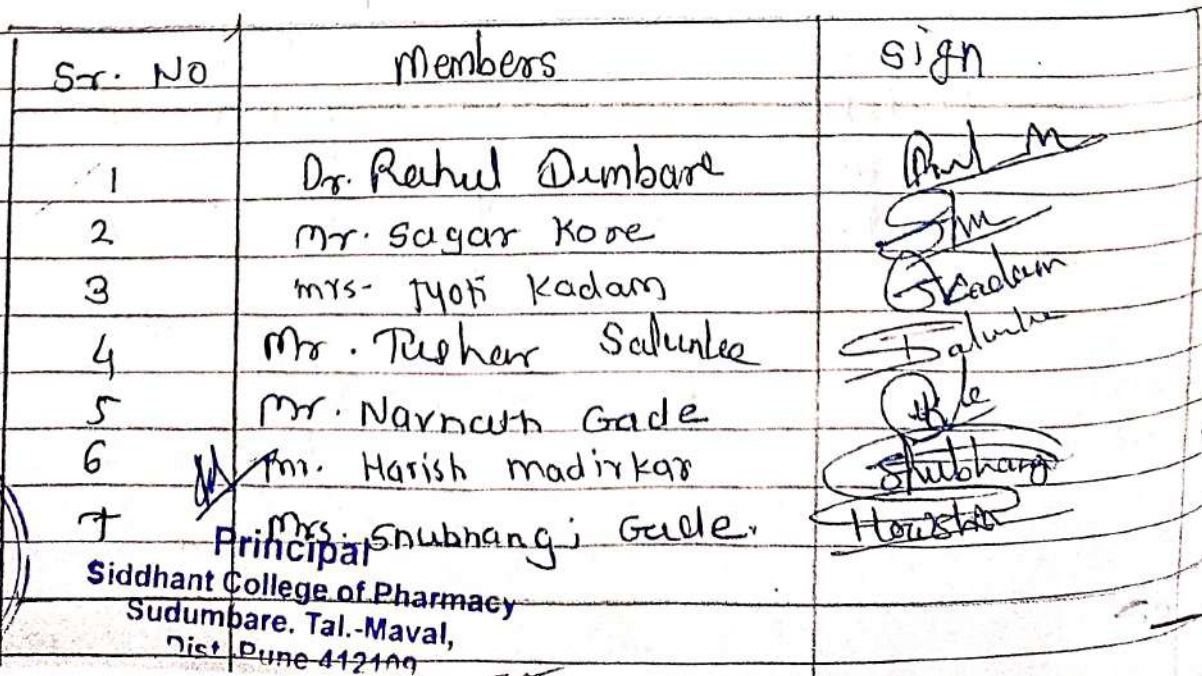 Sr. No Members Sign
1 Dr. Rahul Dumbare
2 Mr. Sagar Kore
3 Mrs- Jyoti Kadam Jkadam
4 Mr. Tushar Salunke Salunke
5 Mr. Navnath Gade
6 Mr. Harish Madirkar Shubhangi
7 Mrs. Shubhangi Gade. Harish
Principal
Siddhant College of Pharmacy
Sudumbare. Tal.-Maval,
Dist. Pune-412109